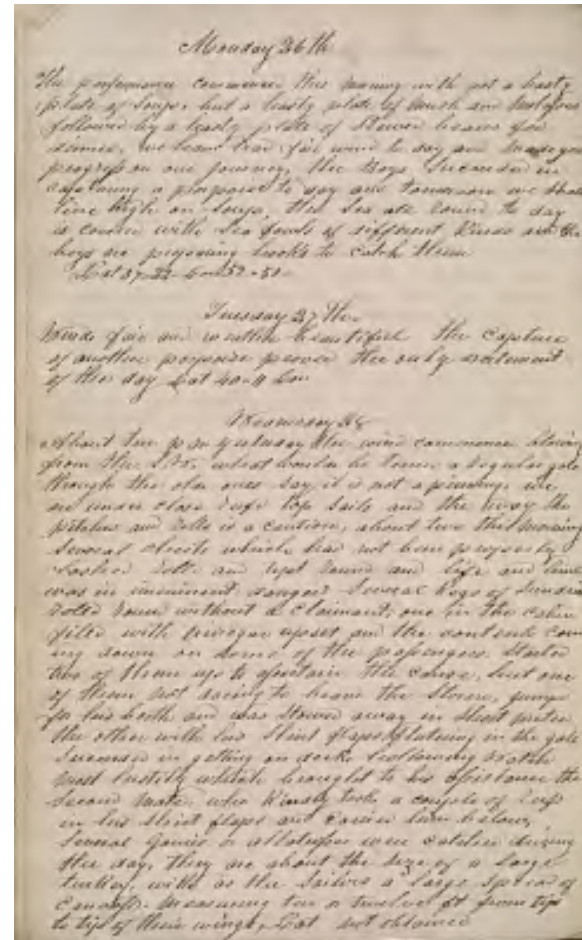 Monday 26th
The performance commence this morning with not a hasty
plate of soup, but a hasty plate of mush and molasses
followed by a hasty plate of stewed beans for
dinner, we have had fair wind to day and made good
progress on our journey, the Boys succeeded in
capturing a porpoise to day and tomorrow we shall
live high on soup, the Sea all round to day
is covered with sea fowls of different kinds and the
boys are preparing hooks to catch them
Lat 37-22 Lon 52-51
Tuesday 27th
Winds fair and weather beautiful the capture
of another porpoise proved the only excitement
of the day Lat 40-11 Lon
Wednesday 28
About two p m yesterday the wind commence blowing
from the S.W. what would be termed a regular gale
though the old ones say it is not a priming, we
are under close reefed top sails and the way she
pitches and rolls is a caution, about two this morning
several chests which had not been properly
lashed rolled and upset round and life and limb
was in imminent danger several kegs of
rolled round without a claimant, one in the cabin
filled with vinegar upset and the contents com
ing down on some of the passengers started
two of them up to ascertain the cause, but one
of them not daring to brave the storm, jumped
for his berth and was stowed away in short
the other with his shirt flaps fluttering in the gale
succeeded in getting on deck
most lustily which brought to his assistance the
second mate, who kindly took a couple of reefs
in his shirt flaps and carried him below,
several or albatross were catched during
the day, they are about the size of a large
turkey, with as the sailors a large spread of
canvass. measuring ten or twelve ft from tip
to tip of their wings, Lat not obtained